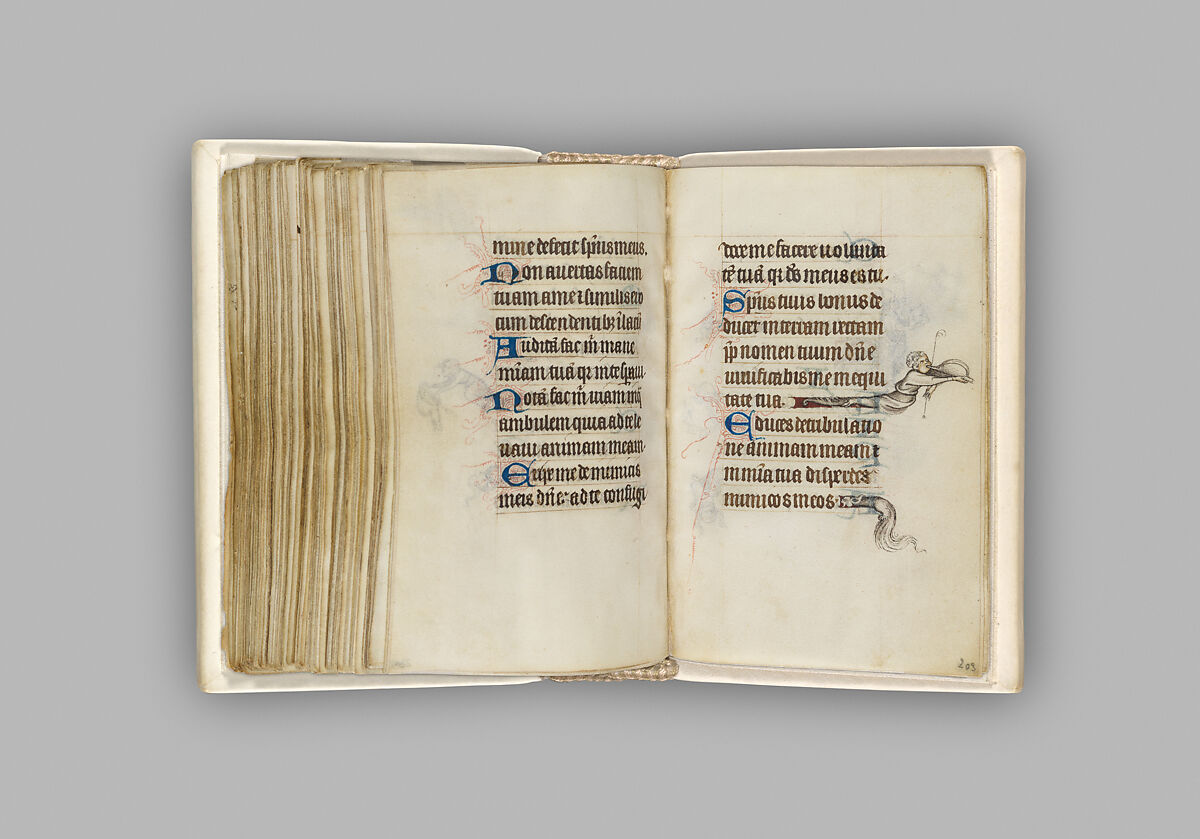 mine defecit sp̃us meus.
Non auertas faciem
tuam a me ⁊ similis ero
cum descendentibꝫ ĩ lacũ
Auditã fac m̃ mane
mĩam tuã qr̃ in te sp̃aui.
Notã fac m̃ uiam in q̃
ambulem quia ad te le
uaui animam meam.
Eripe me de inimicis
meis dñe: ad te confugi
doce me facere uolunta
tẽ tuã qr̃ ds̃ meus es tu.
Sp̃us tuus bonus de
ducet in terram rectam
pp̃ nomen tuum dñe
uiuificabis me in equi
tate tua.
Educes de tribulatio
ne animam meam ⁊
in mĩa tua disperdes
inimicos meos.
203